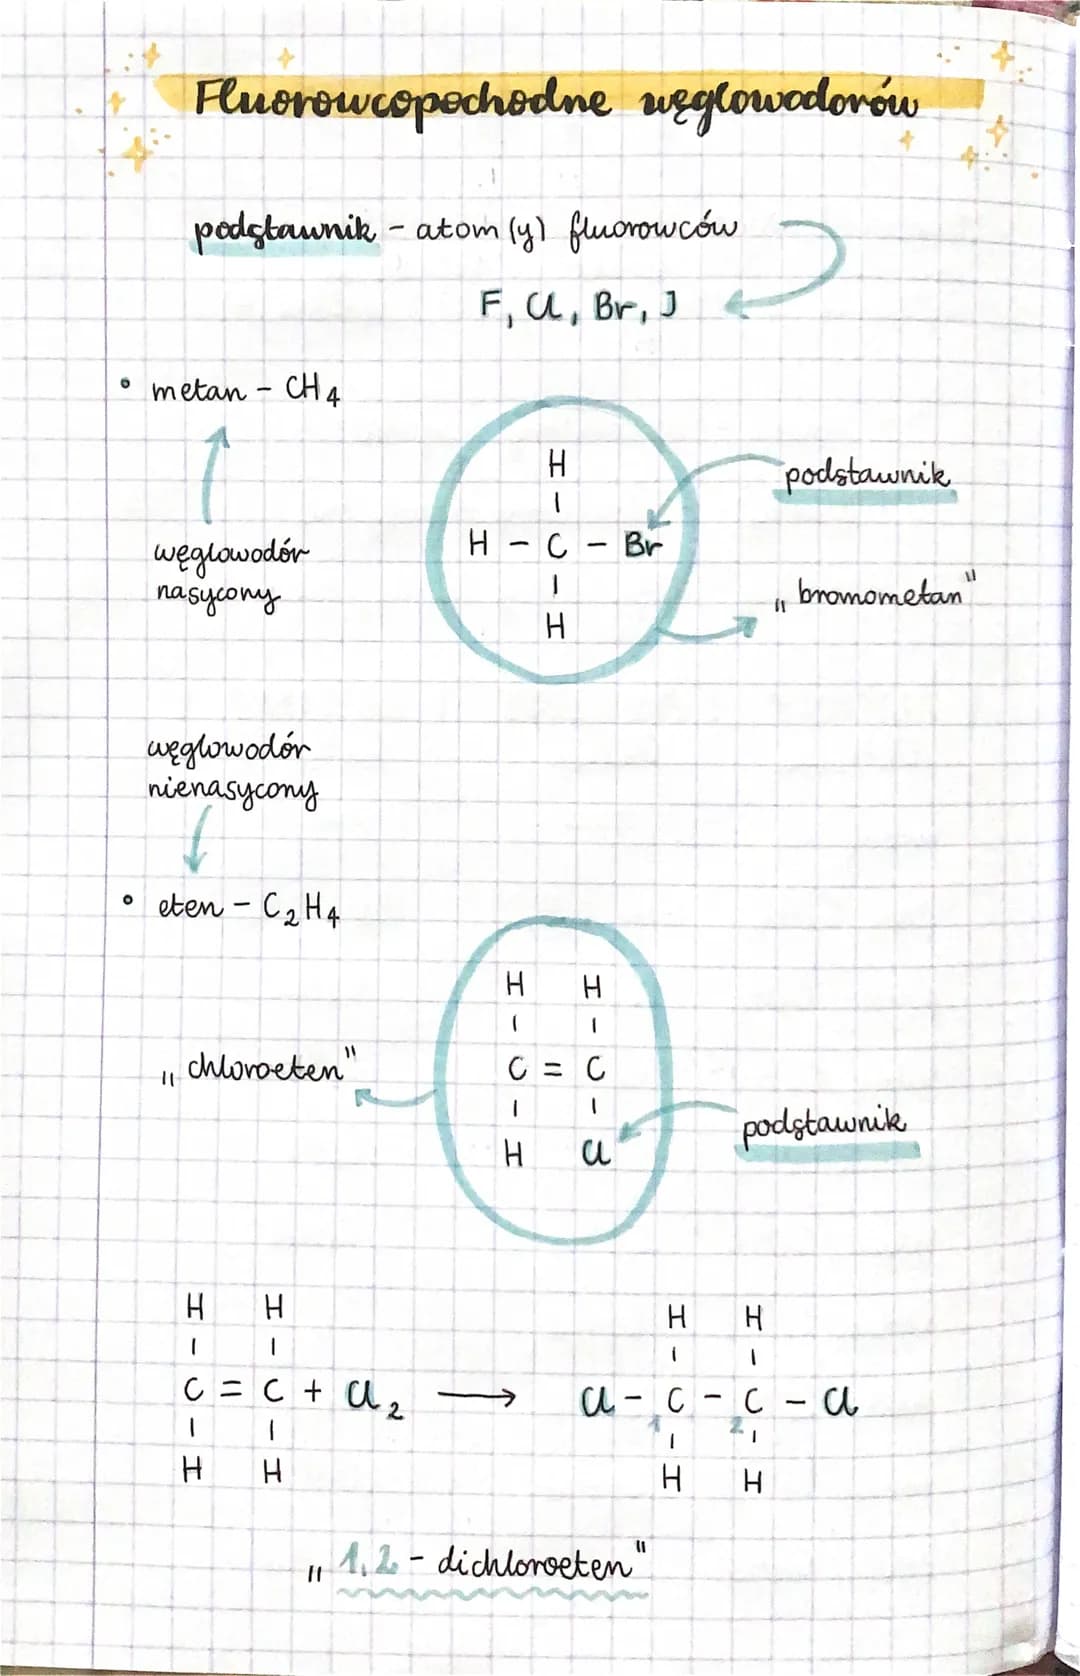 Fluorowcopochodne węglowodorów
podstawnik - atom(y) fluorowców
F, Cl, Br, J
• metan - CH4
węglowodór
nasycony
H
|
H - C - Br
|
H
podstawnik
„bromometan"
węglowodór
nienasycony
• eten - C2H4
„chloroeten"
H H
| |
C = C
| |
H Cl
podstawnik
H H
| |
C = C + Cl2 →
| |
H H
H H
| |
Cl - C - C - Cl
1 2
| |
H H
„1,2 - dichloroeten"